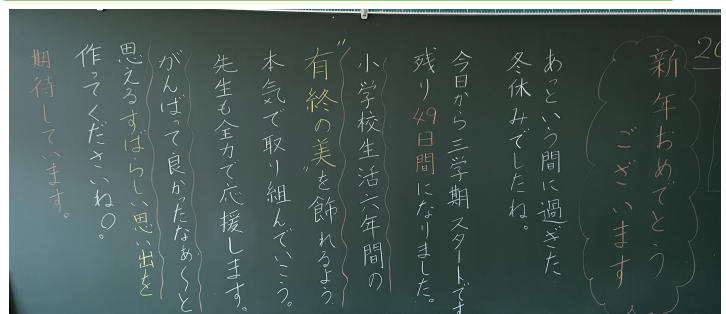 20
新年おめでとう
ございます
あっという間に過ぎた
冬休みでしたね。
今日から三学期スタートです
残り49日間になりました。
小学校生活六年間の
"有終の美"を飾れるよう
本気で取り組んでいこう。
先生も全力で応援します。
がんばって良かったなぁ〜と
思えるすばらしい思い出を
作ってくださいね○。
期待しています。